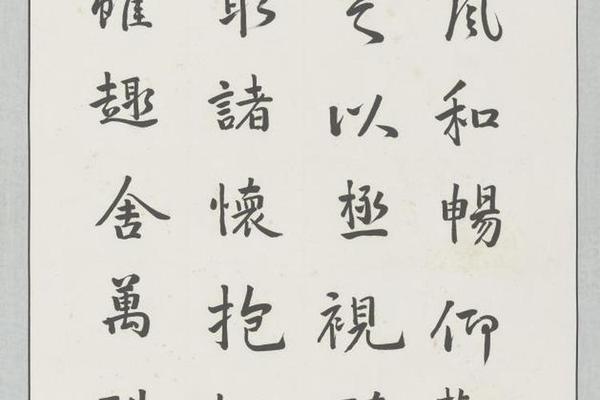 風和暢仰
足以極視
取諸懷抱
雖趣舍萬